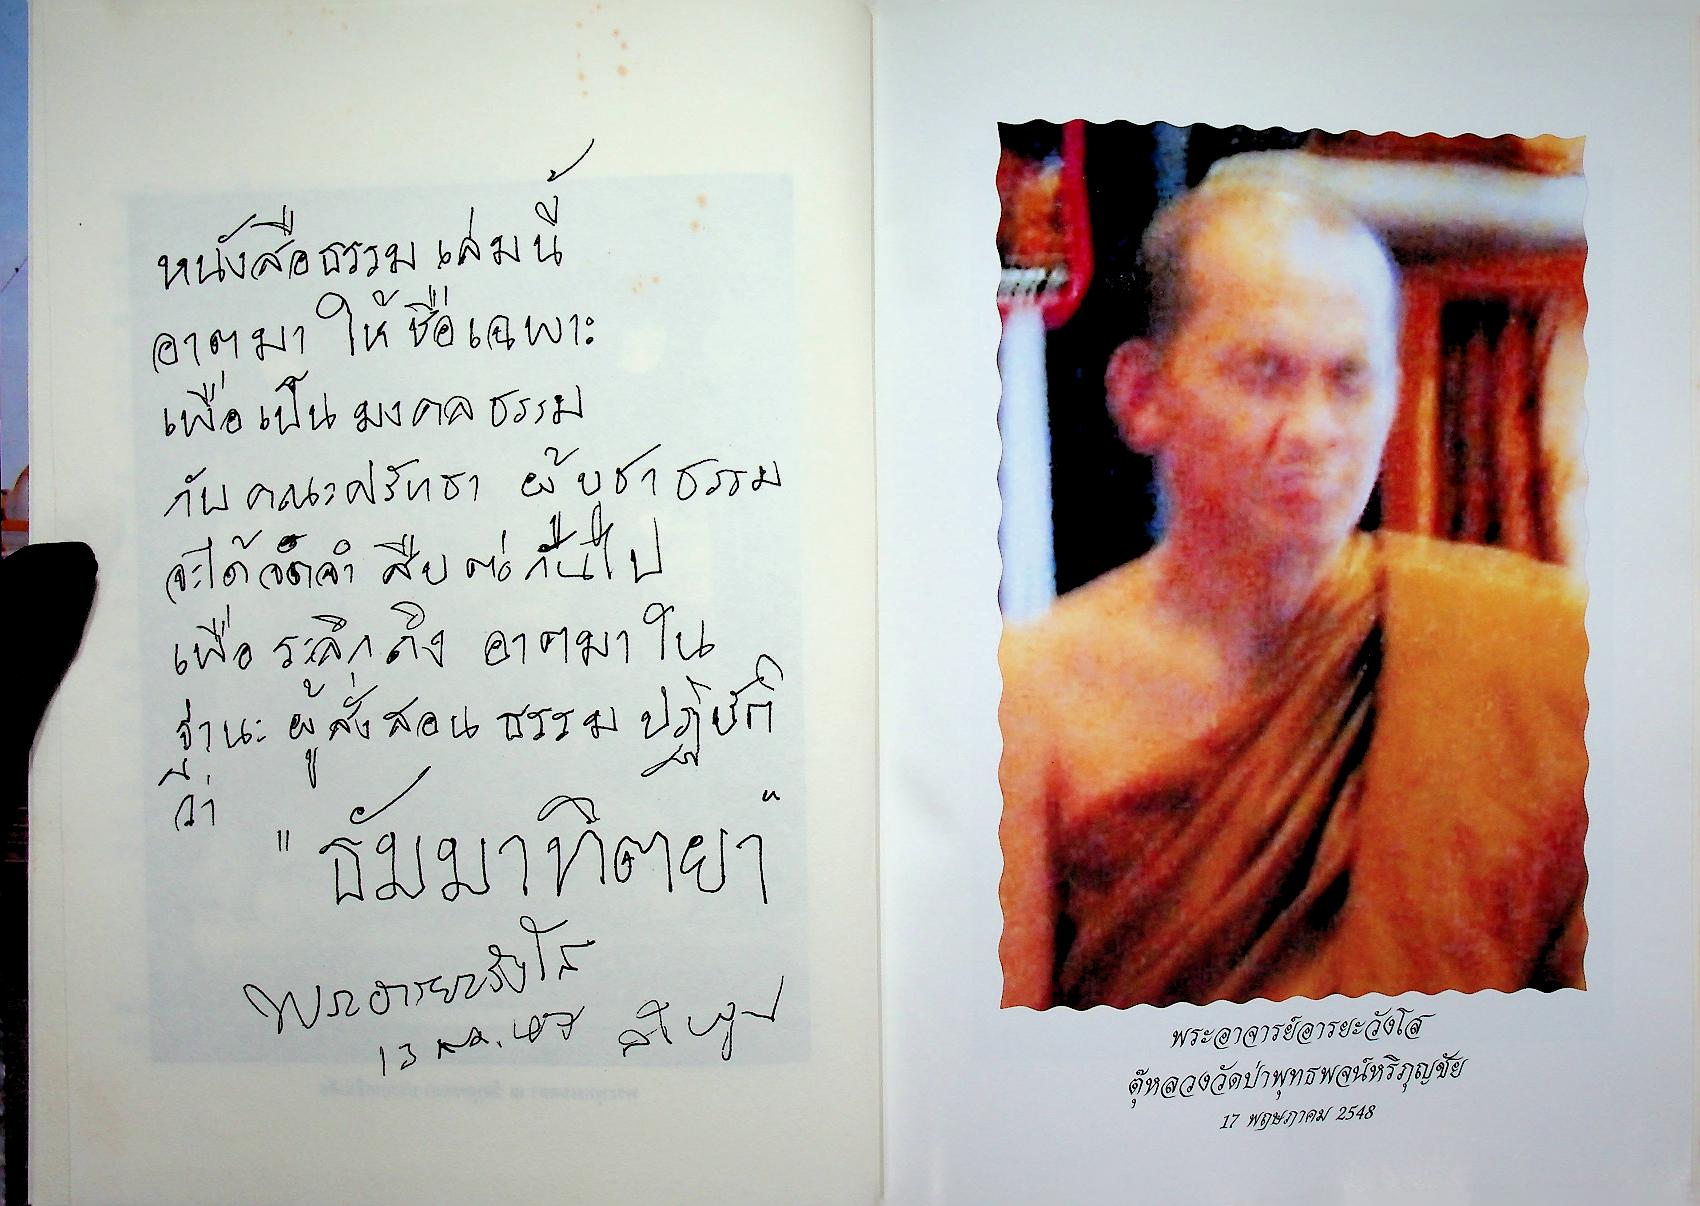 หนังสือธรรมเล่มนี้
อาตมา ให้ชื่อเฉพาะ
เพื่อเป็นมงคลธรรม
กับคณะศรัทธา ผู้บูชาธรรม
จะได้จดจำ สืบต่อกันไป
เพื่อระลึกถึง อาตมาใน
ฐานะ ผู้สั่งสอนธรรมปฏิบัติ
ว่า
"ธัมมาทิตยา"
พระอารยะวังโส
13 พ.ค.
พระอาจารย์อารยะวังโส
ตุ๊หลวงวัดป่าพุทธพจน์หริภุญชัย
17 พฤษภาคม 2548